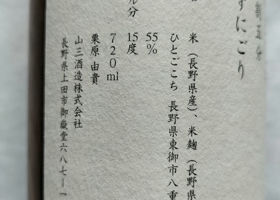 ずにごり
米(長野県産)、米麹(長野県
ひとごこち 長野県東御市八重
55%
15度
720ml
栗原由貴
山三酒造株式会社
長野県上田市御嶽堂六八七ー一